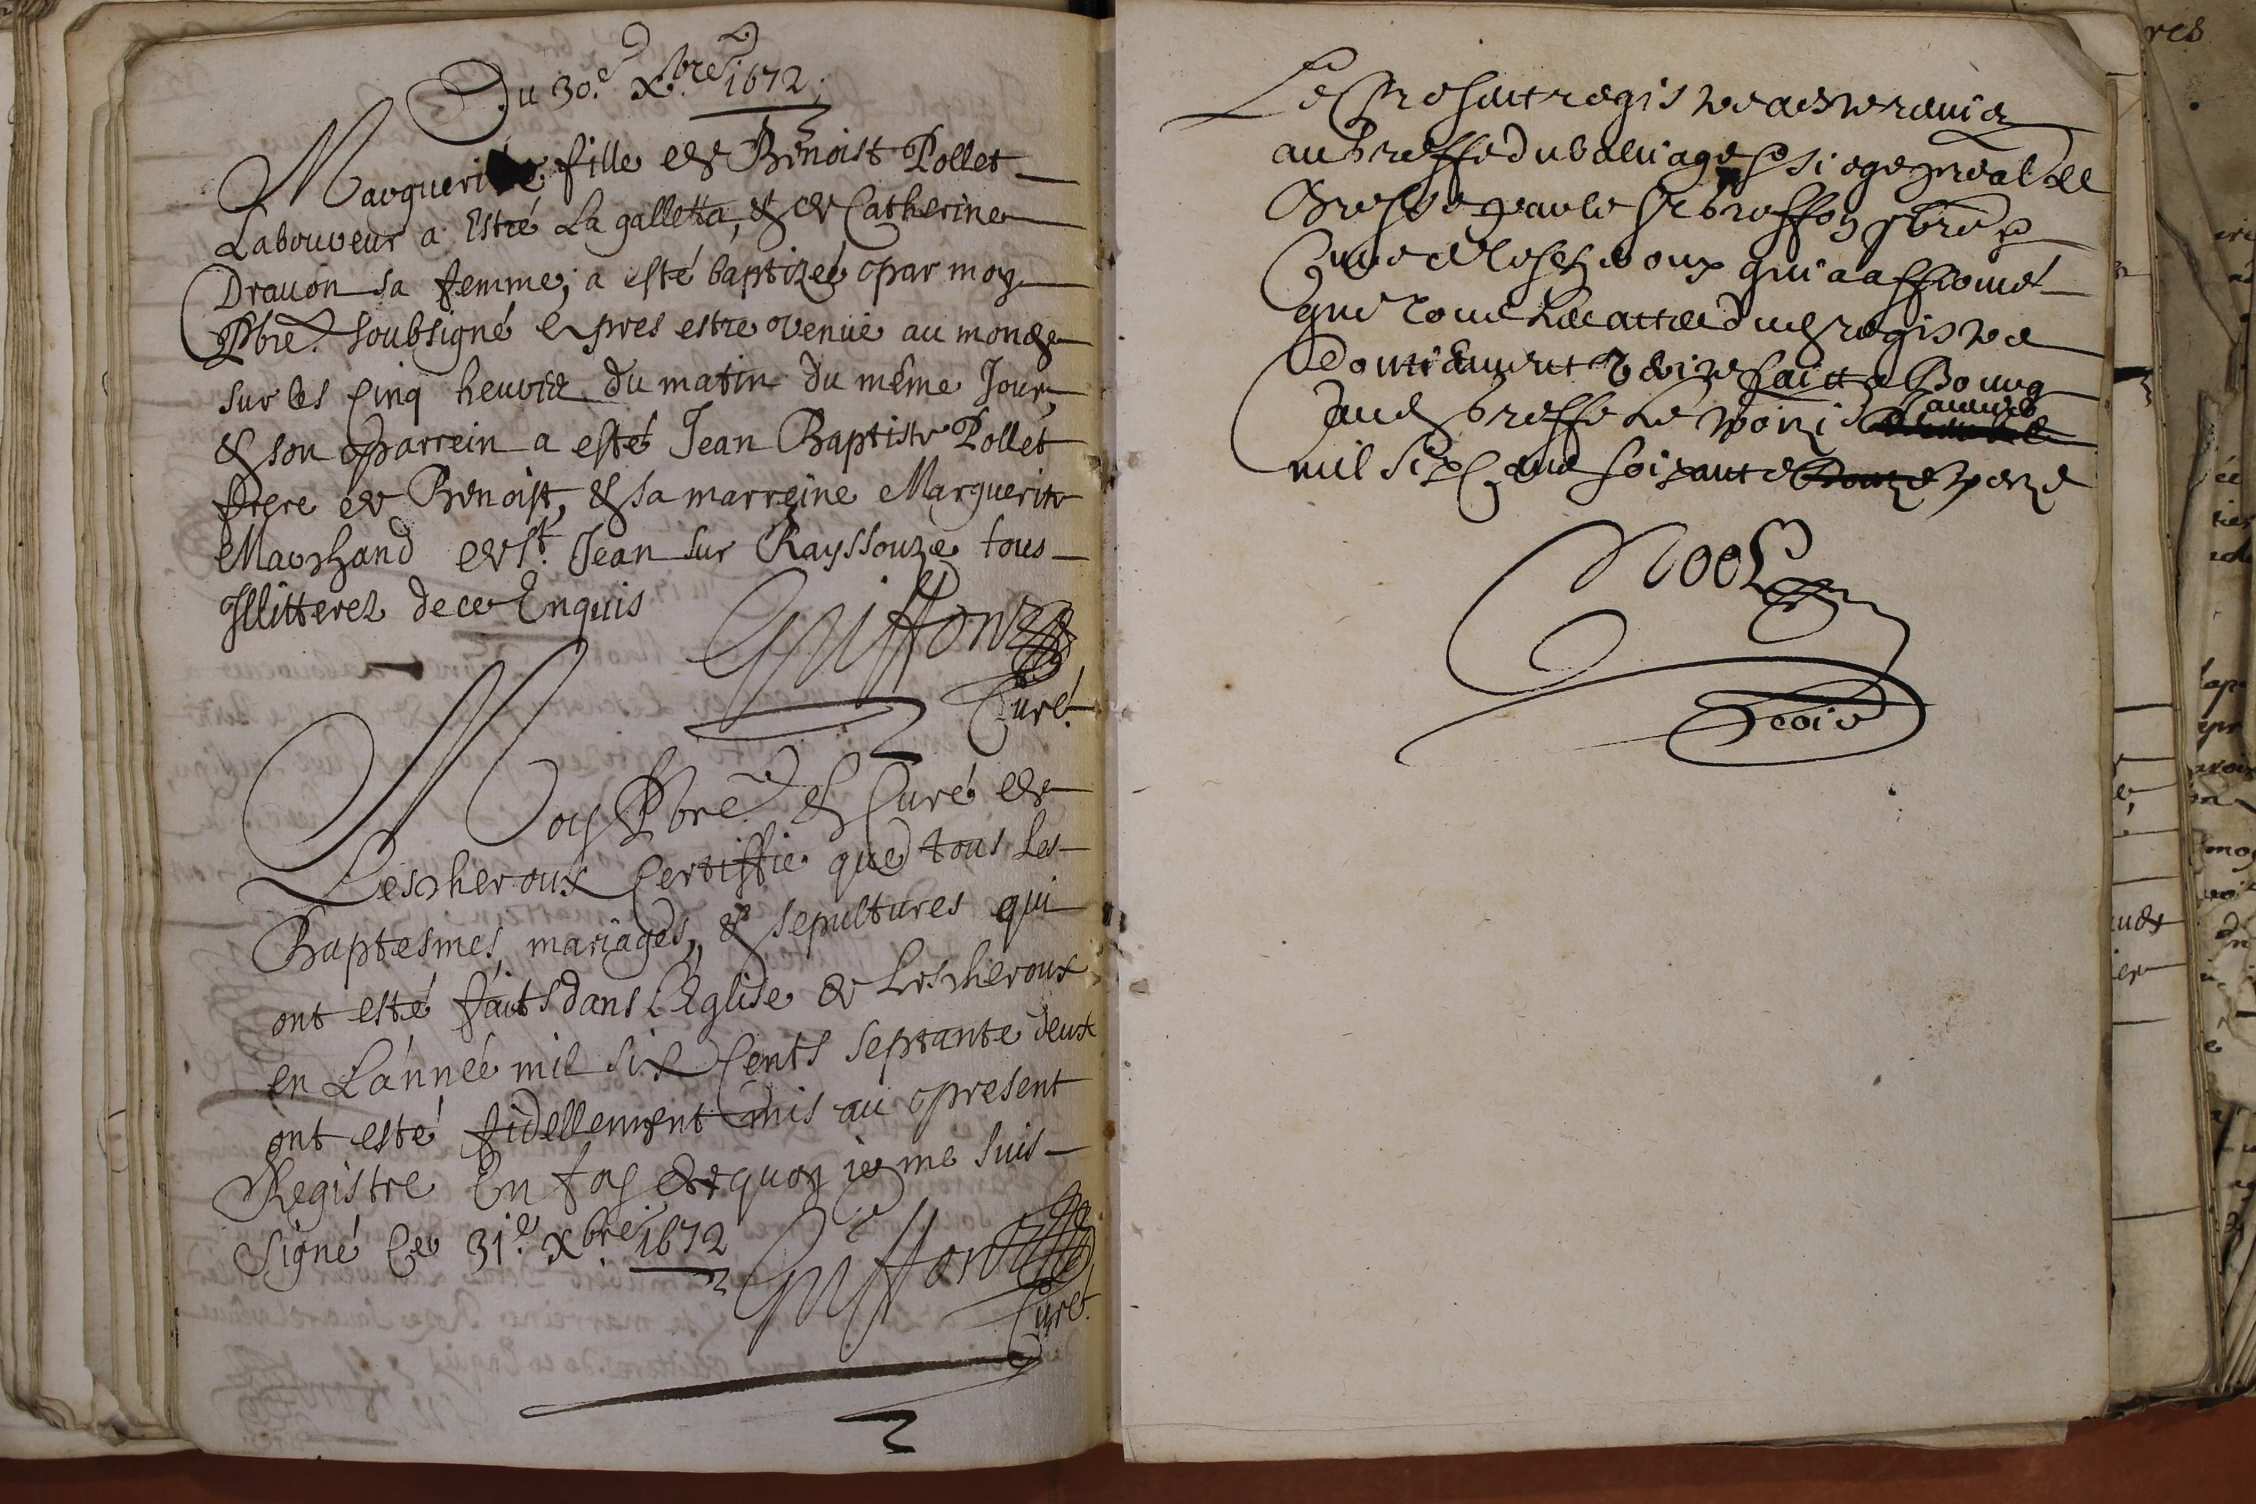 Du 30.e Xbre 1672.
Marguerite fille de Benoist Pollet
Laboureur a Estré La galletta, & de Catherine
Drauon sa femme, a esté baptizeé par moy
Pbre. soubsigné apres estre venue au monde
sur les Cinq heures du matin du même Jour,
& son parrein a esté Jean Baptiste Pollet
frere de Benoist, & sa marreine Marguerite
Marchand de St. Jean sur Rayssouze tous
Illitterez de ce Enquis
Guiffon
Curé.
Moy Pbre & Curé de
Lescheroux Certiffie que tous Les
Baptesmes, mariages, & sepultures qui
ont esté faits dans L'Eglise de Lescheroux
en L'année mil six Cents septante deux
ont esté fidellement mis au present
Registre En foy de quoy ie me suis
signé Ce 31.e Xbre 1672
Guiffon
Curé.
Le present registre a este remis
au Greffe du baliage & siege presidial de
Bresse par le Sr Greffon pbre &
Curé de Leseheroux qui a affirmé
que tous Les actes dud registre
Contiennent verité fait a Bourg
aud Greffe Le janvier
mil six Cent soixante treze